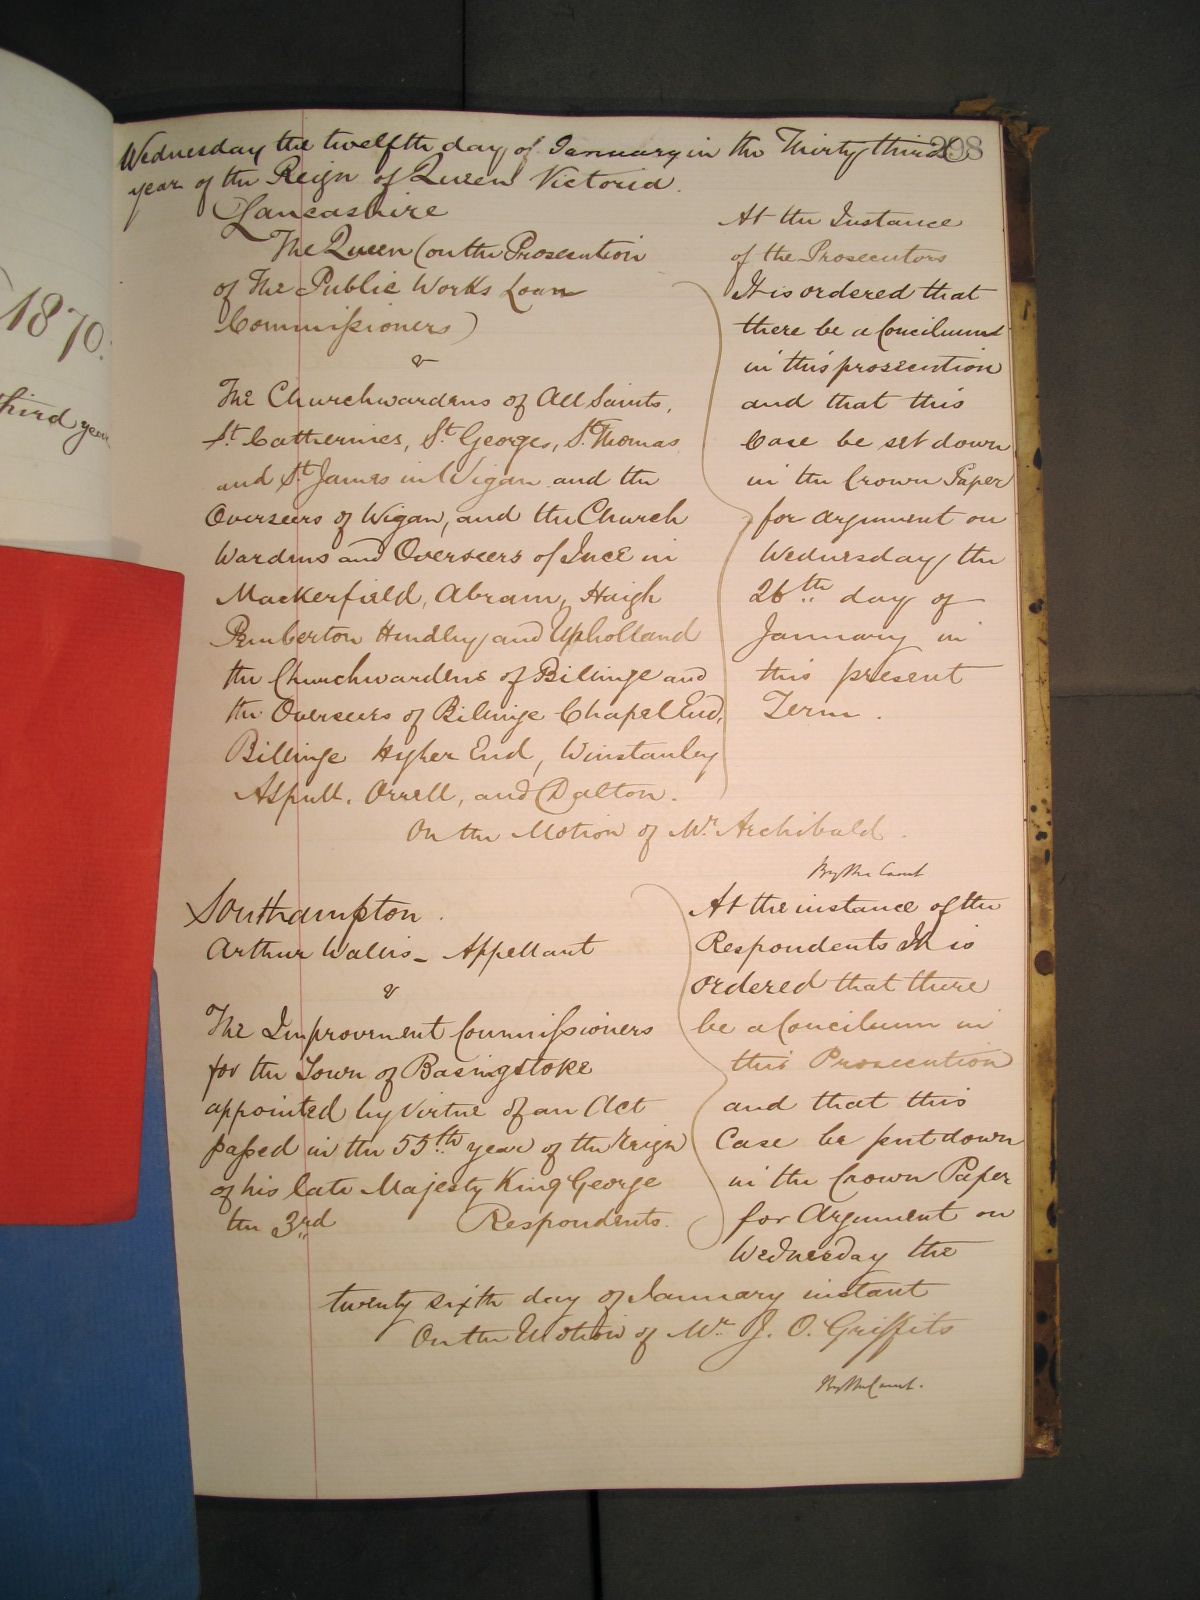 1870.
third year
298
Wednesday the twelfth day of January in the Thirty third
year of the Reign of Queen Victoria.
Lancashire
The Queen (on the Prosecution
of The Public Works Loan
Commissioners)
v
The Churchwardens of All Saints,
St. Catherines, St. Georges, St. Thomas
and St. James in Wigan and the
Overseers of Wigan, and the Church
Wardens and Overseers of Ince in
Mackerfield, Abram, Haigh
Pemberton Hindley and Upholland
the Churchwardens of Billinge and
the Overseers of Billinge Chapel End,
Billinge Hyher End, Winstanley
Aspull, Orrell, and Dalton.
At the Instance
of the Prosecutors
It is ordered that
there be a Concilium
in this prosecution
and that this
Case be set down
in the Crown Paper
for argument on
Wednesday the
26th day of
January in
this present
Term.
On the Motion of Mr. Archibald.
By the Court
Southampton.
Arthur Wallis - Appellant
v
The Improvement Commissioners
for the Town of Basingstoke
appointed by Virtue of an Act
passed in the 55th year of the Reign
of his late Majesty King George
the 3rd Respondents.
At the instance of the
Respondents It is
ordered that there
be a Concilium in
this Prosecution
and that this
Case be put down
in the Crown Paper
for Argument on
Wednesday the
twenty sixth day of January instant
On the Motion of Mr. J. O. Griffits
By the Court.